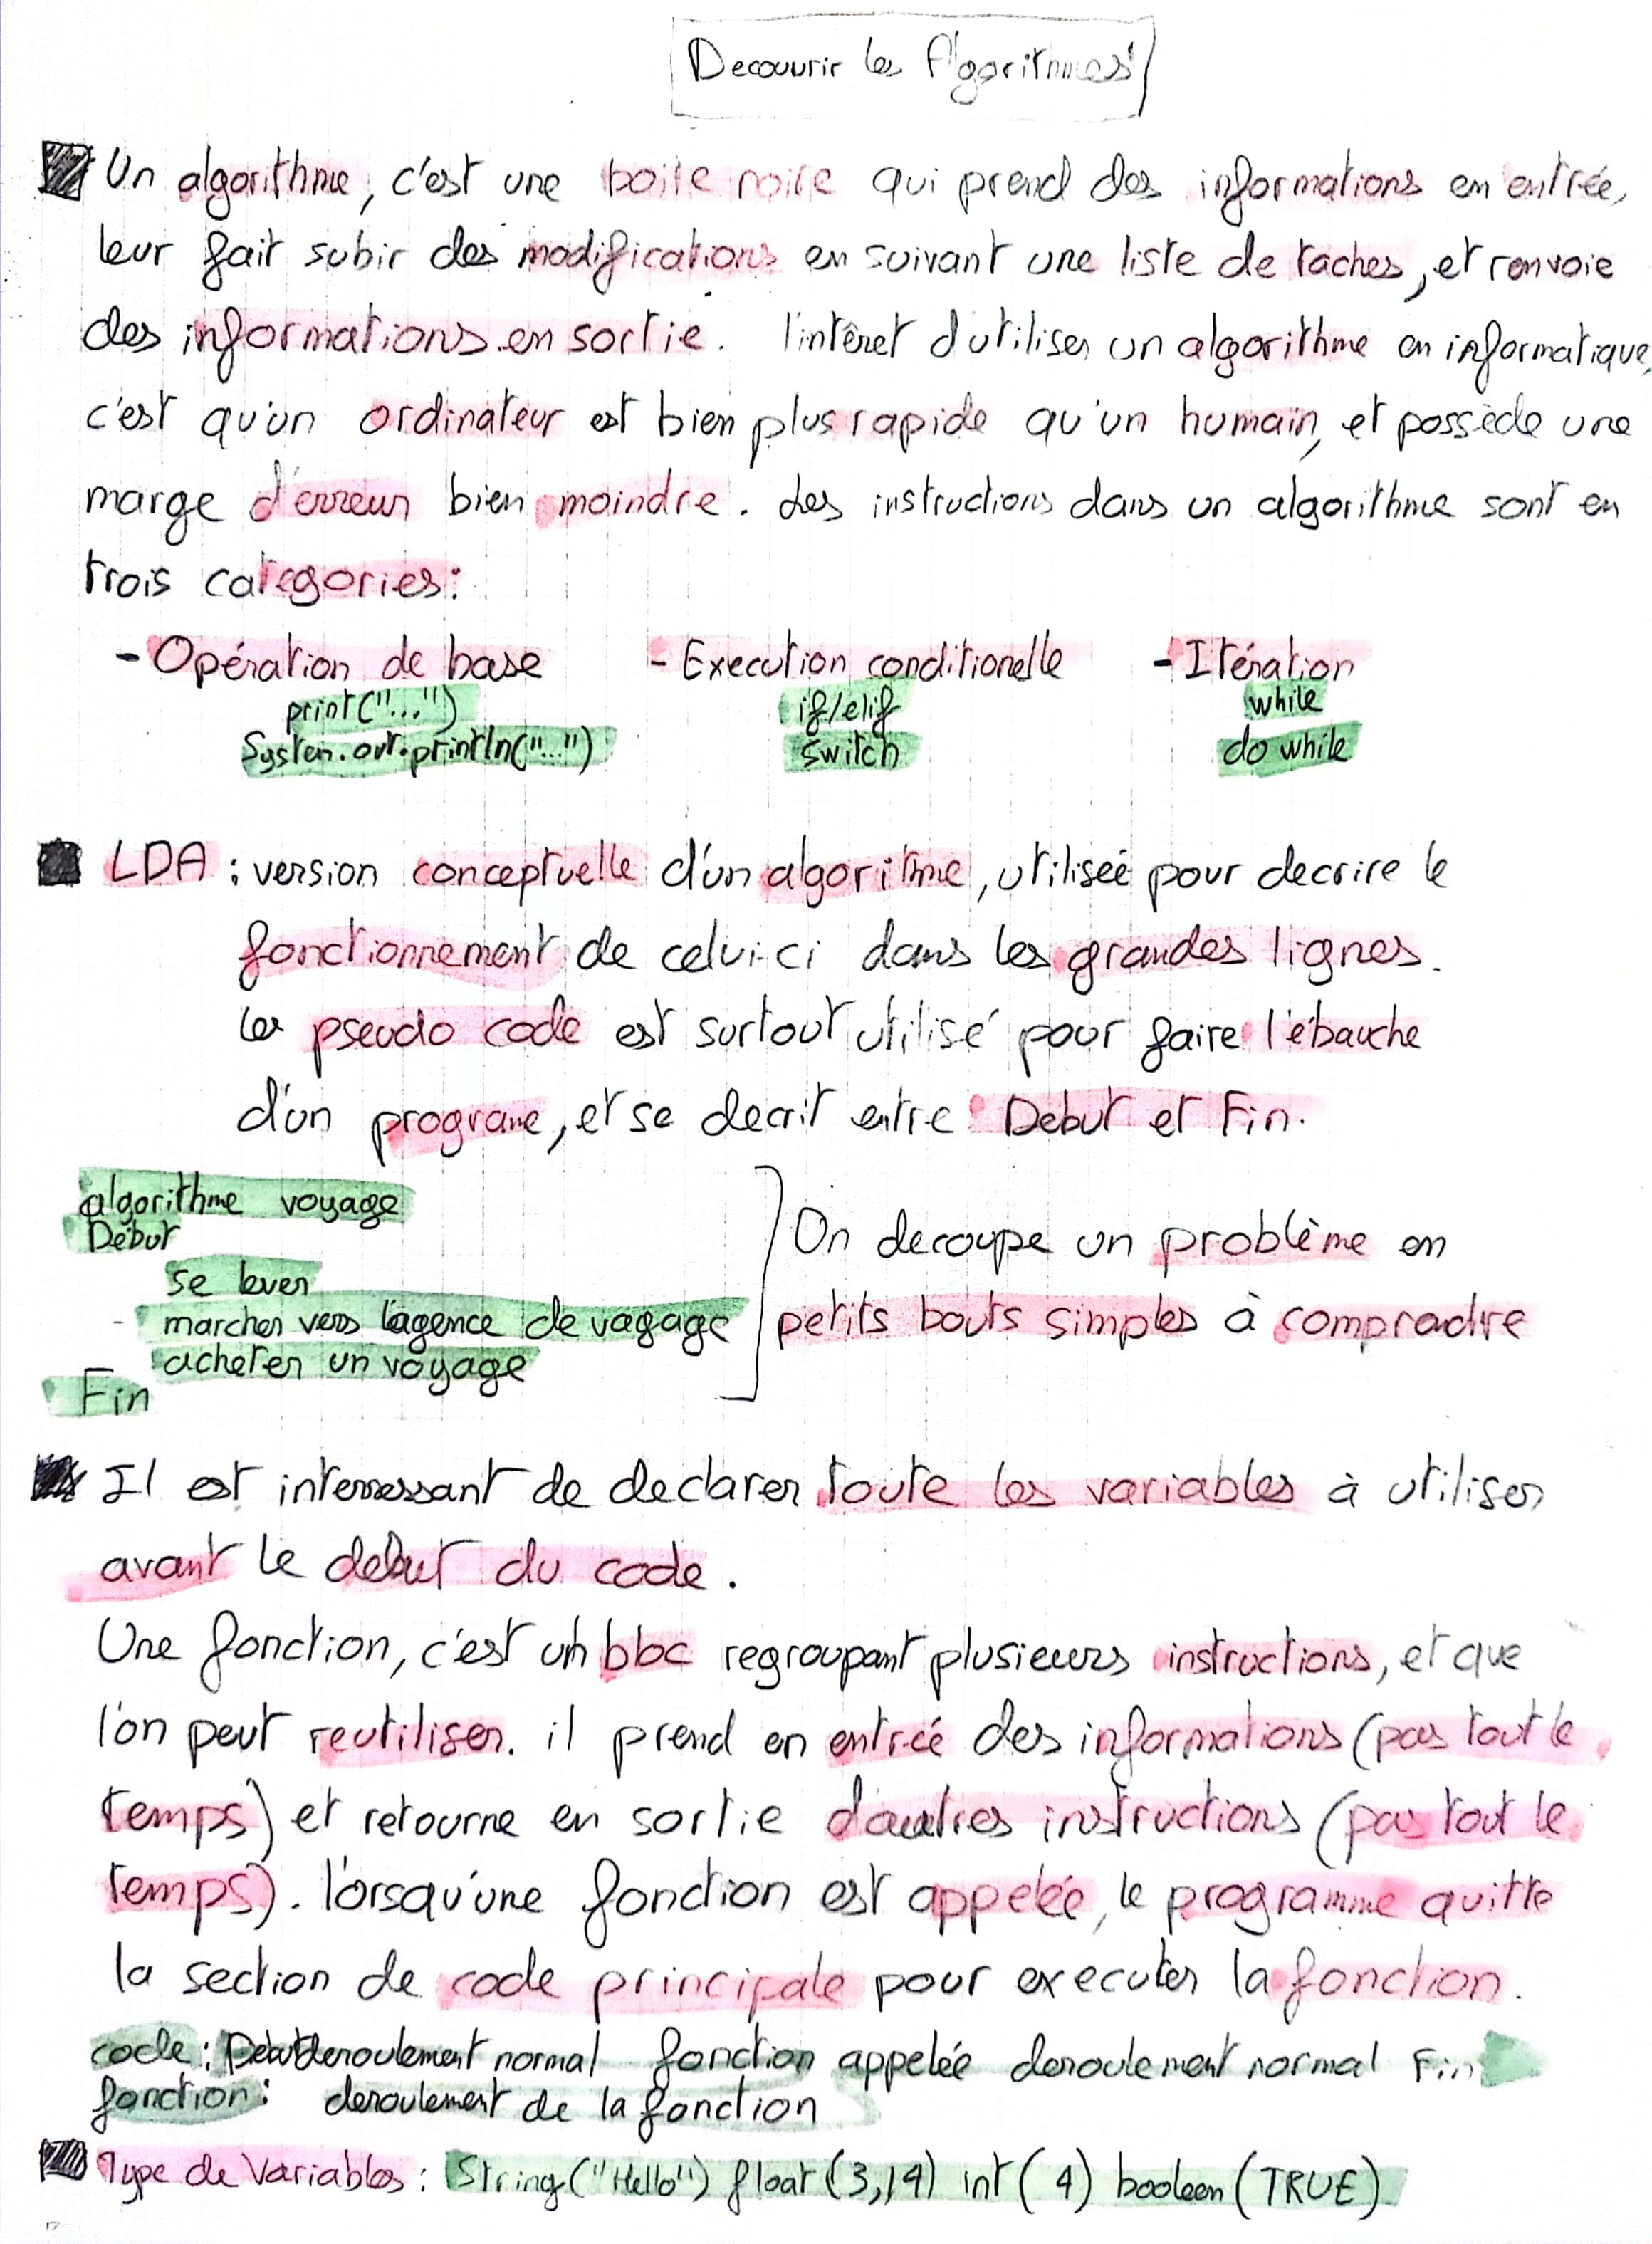 Decouvrir les Algorithmes
Un algorithme, c'est une boite noire qui prend des informations en entrée,
leur fait subir des modifications en suivant une liste de taches, et renvoie
des informations en sortie. l'intêret d'utiliser un algorithme en informatique,
c'est qu'un ordinateur est bien plus rapide qu'un humain, et possède une
marge d'erreur bien moindre. Les instructions dans un algorithme sont en
trois categories:
- Opération de base - Execution conditionelle - Itération
print("...") if/elif while
System.out.println("...") switch do while
LDA : version conceptuelle d'un algorithme, utilisée pour decrire le
fonctionnement de celui-ci dans les grandes lignes.
Le pseudo code est surtout utilisé pour faire l'ébauche
d'un programe, et se decrit entre Debut et Fin.
algorithme voyage
Début
se lever
marcher vers l'agence de vagage
acheter un voyage
Fin
On decoupe un problème en
petits bouts simples à comprendre
Il est interressant de declarer toute les variables à utiliser
avant le debut du code.
Une fonction, c'est un bloc regroupant plusieurs instructions, et que
l'on peut reutiliser. il prend en entrée des informations (pas tout le
temps) et retourne en sortie d'autres instructions (pas tout le
temps). lorsqu'une fonction est appelée, le programme quitte
la section de code principale pour executer la fonction.
code : Début deroulement normal fonction appelée deroulement normal Fin
fonction : deroulement de la fonction
Type de Variables : String("Hello") float (3,14) int (4) booleen (TRUE)